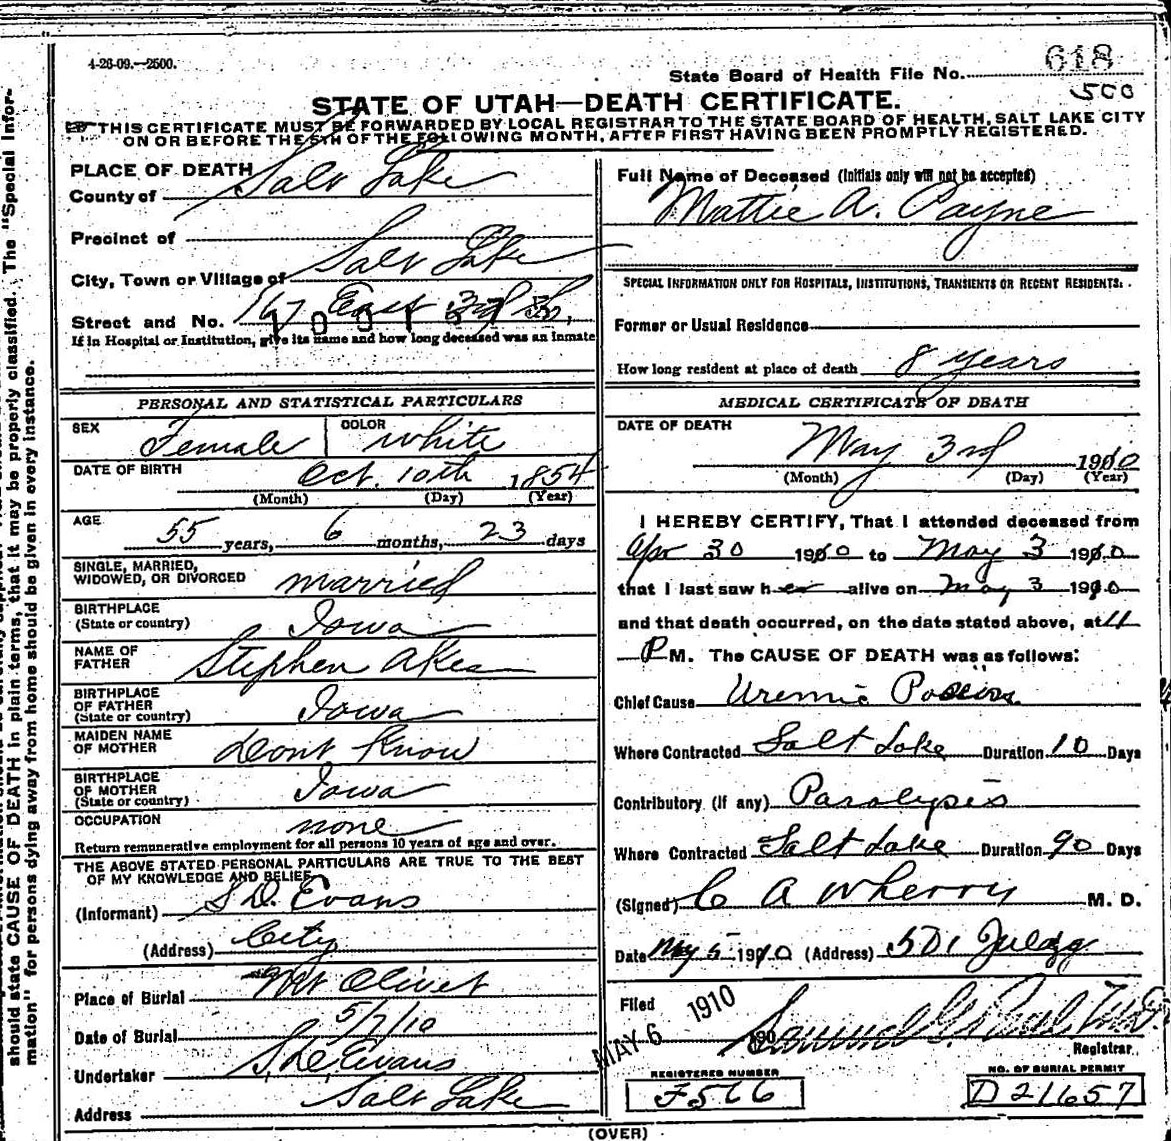 4-26-09.—2500.
State Board of Health File No. 618
500
STATE OF UTAH—DEATH CERTIFICATE.
THIS CERTIFICATE MUST BE FORWARDED BY LOCAL REGISTRAR TO THE STATE BOARD OF HEALTH, SALT LAKE CITY
ON OR BEFORE THE 5TH OF THE FOLLOWING MONTH, AFTER FIRST HAVING BEEN PROMPTLY REGISTERED.
PLACE OF DEATH
County of Salt Lake
Precinct of
City, Town or Village of Salt Lake
Street and No. 167 East 3rd So.
If in Hospital or Institution, give its name and how long deceased was an inmate
PERSONAL AND STATISTICAL PARTICULARS
SEX Female COLOR white
DATE OF BIRTH Oct. 10th 1854
(Month) (Day) (Year)
AGE 55 years, 6 months, 23 days
SINGLE, MARRIED,
WIDOWED, OR DIVORCED married
BIRTHPLACE
(State or country) Iowa
NAME OF
FATHER Stephen Akes
BIRTHPLACE
OF FATHER
(State or country) Iowa
MAIDEN NAME
OF MOTHER Dont Know
BIRTHPLACE
OF MOTHER
(State or country) Iowa
OCCUPATION none
Return remunerative employment for all persons 10 years of age and over.
THE ABOVE STATED PERSONAL PARTICULARS ARE TRUE TO THE BEST
OF MY KNOWLEDGE AND BELIEF
(Informant) S D. Evans
(Address) City
Place of Burial Mt Olivet
Date of Burial 5/7/10
Undertaker S. D. Evans
Address Salt Lake
Full Name of Deceased (Initials only will not be accepted)
Mattie A. Payne
SPECIAL INFORMATION ONLY FOR HOSPITALS, INSTITUTIONS, TRANSIENTS OR RECENT RESIDENTS.
Former or Usual Residence
How long resident at place of death 8 years
MEDICAL CERTIFICATE OF DEATH
DATE OF DEATH May 3rd 1910
(Month) (Day) (Year)
I HEREBY CERTIFY, That I attended deceased from
Apr 30 1910 to May 3 1910
that I last saw her alive on May 3 1910
and that death occurred, on the date stated above, at 11
P M. The CAUSE OF DEATH was as follows:
Chief Cause Uremic Poison
Where Contracted Salt Lake Duration 10 Days
Contributory (if any) Paralysis
Where Contracted Salt Lake Duration 90 Days
(Signed) C A Wherry M. D.
Date May 5 1910 (Address) 501 Judge
Filed MAY 6 1910 190
Registrar
REGISTERED NUMBER
F566
NO. OF BURIAL PERMIT
D21657
(OVER)
should state CAUSE OF DEATH in plain terms, that it may be properly classified. The "Special Infor-
mation" for persons dying away from home should be given in every instance.